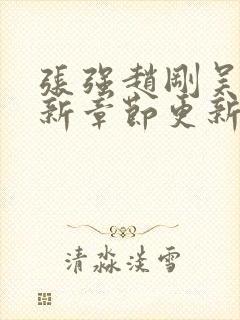 張強趙剛吳
新章節更新
清淼淡雪